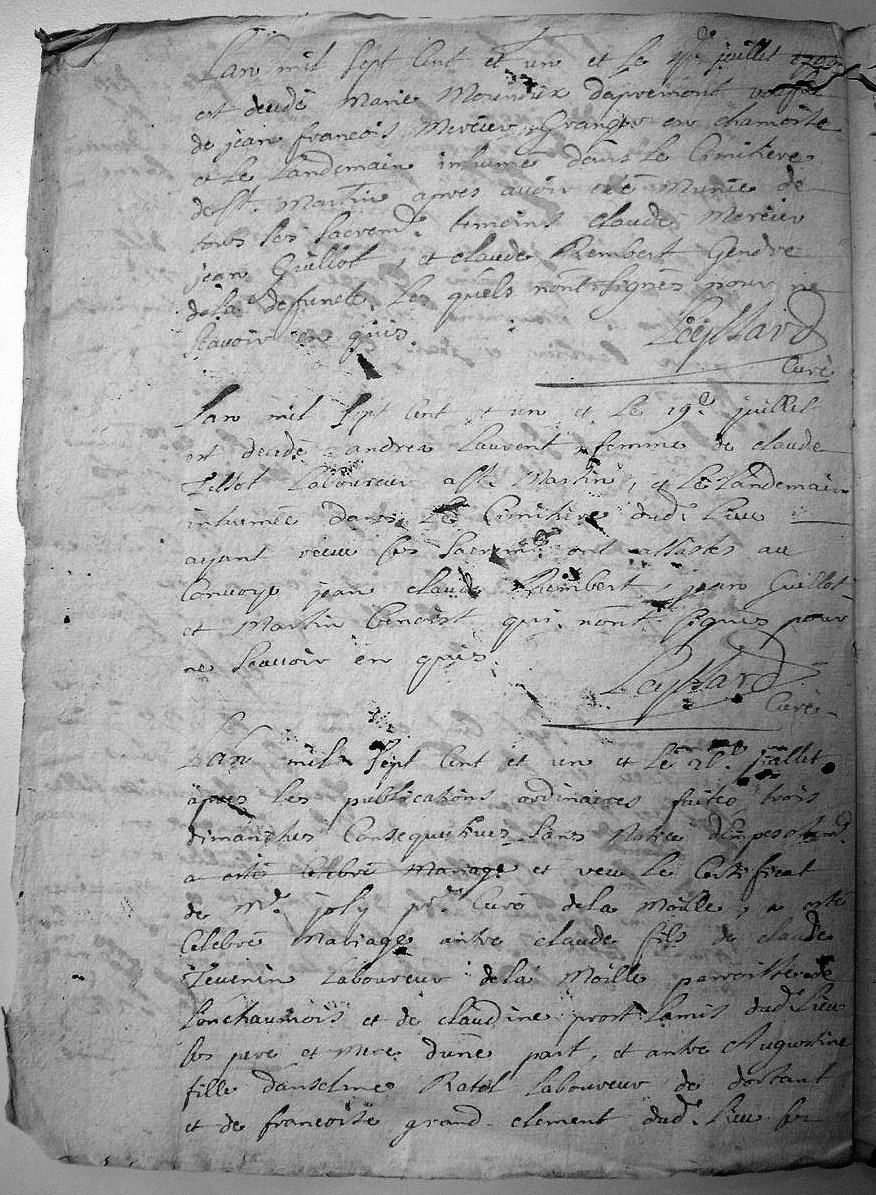 Lan mil sept Cent et un et le juillet
est decedé Marie vefve
de jean francois Mercier Granger en chamoite
et le Landemain inhumé dans le Cimitiere
de St. Martin apres avoir eté Munie de
tous les sacremts. temoins claude Mercier
jean Guillot, et claude Rembert Gendre
dela deffuncte Les quels nont signés pour ne
scavoir en quis.
Curé
Lan mil sept Cent et un et le 19e juillet
est decedé andrea Laurent femme de claude
Laboureur a St. Martin, et le Landemain
inhumée dans le Cimitiere dud. Lieu
ayant receu les sacremts. ont assistés au
Convoye jean claude Humbert, jean Guillot
et Martin benoist qui nont signés pour
ne scavoir en quis.
Curé
Lan mil sept Cent et un et le 26e juillet
apres les publications ordinaires faites trois
dimanches Consequtives sans Notice
a esté Celebré Mariage et veu le Certificat
de Mre. joly ptre. Curé dela Moille, a esté
Celebré Mariage antre claude fils de claude
Tevenin Laboureur dela Moille parroisse de
Lonchaumois et de claudine prost Lamis dud. Lieu
ses pere et mere dune part, et antre Augustine
fille danselme Ratel laboureur de dortant
et de francoise grand clement dud. Lieu ses